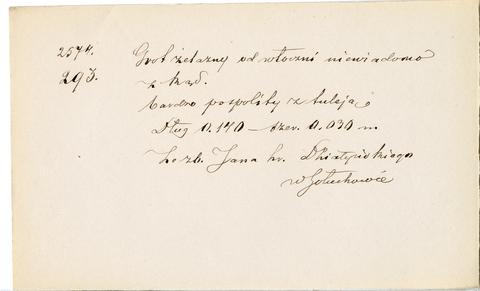 2574. Grot żelazny od włóczni niewiadomo
293. z kąd.
Bardzo pospolity z tuleją
Dług 0.140 – szer. 0.030 m
Ze zb. Jana hr. Działyńskiego
w Gołuchowie